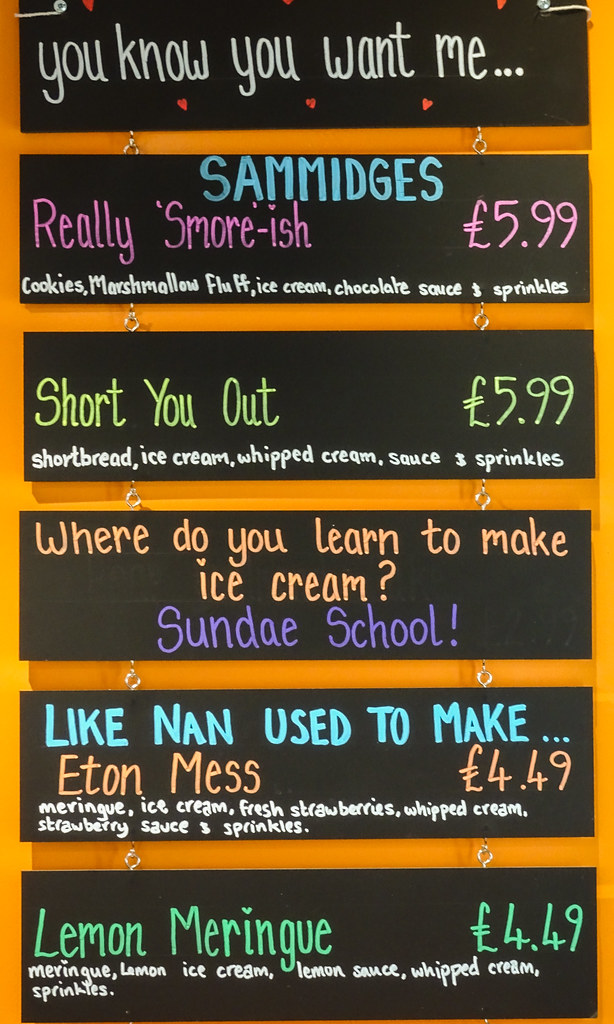 you know you want me...
SAMMIDGES
Really 'Smore'-ish £5.99
Cookies, Marshmallow Fluff, ice cream, chocolate sauce & sprinkles
Short You Out £5.99
shortbread, ice cream, whipped cream, sauce & sprinkles
Where do you learn to make
ice cream?
Sundae School!
LIKE NAN USED TO MAKE...
Eton Mess £4.49
meringue, ice cream, fresh strawberries, whipped cream,
strawberry sauce & sprinkles.
Lemon Meringue £4.49
meringue, Lemon ice cream, lemon sauce, whipped cream,
sprinkles.